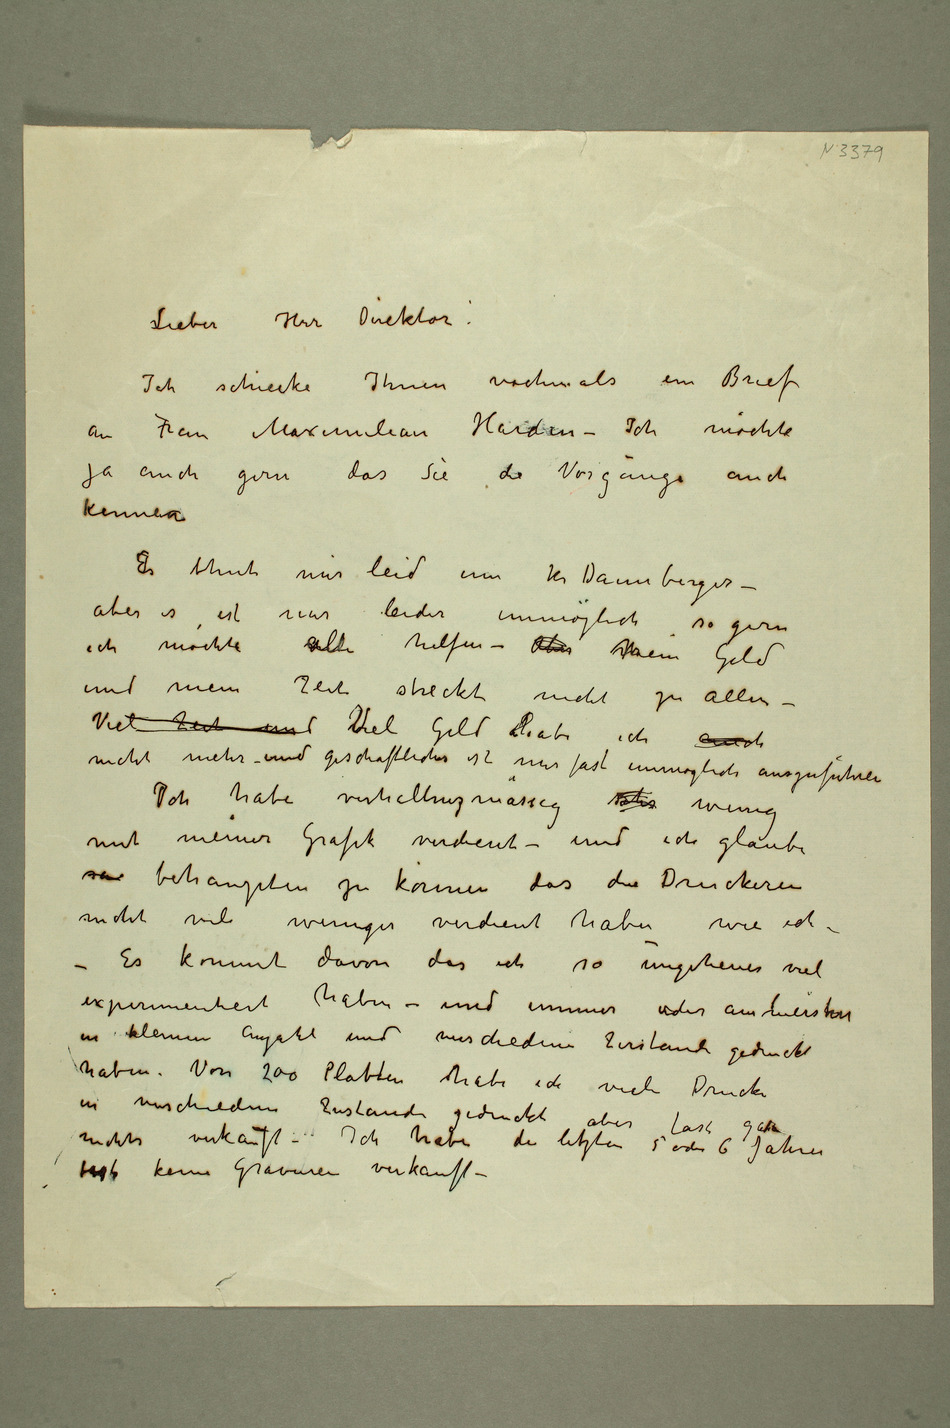 N 3379
Lieber Herr Direktor!
Ich schiecke Ihnen nochmals ein Brief
an Frau Maximilian Harden – Ich möchte
ja auch gern das Sie die Vorgänge auch
kennen
Es thut mir leid um Hr Dannberger –
aber es ist mir leider unmöglich so gern
ich möchte alle helfen – aber Mein Geld
und mein Zeit streckt nicht zu allen –
Viel Zeit und Viel Geld habe ich auch
nicht mehr – und geschäftliches ist mir fast unmöglich auszuführen
Ich habe verhaltnizmässig wenig
mit meiner Grafik verdient – und ich glaube
behaupten zu können das die Druckeren
nicht viel weniger verdient haben wie ich –
– Es kommt davon das ich so ungeheuer viel
experimentiert haben – und immer oder am meisten
in kleinen Anzahl und verschiedene Zustande gedruckt
haben. Von 200 Platten habe ich viele Drucke
in verschiedene Zustande gedruckt aber fast gar
nichts verkauft – Ich habe die letzten 5 oder 6 Jahren
fast keine Gravuren verkauft –